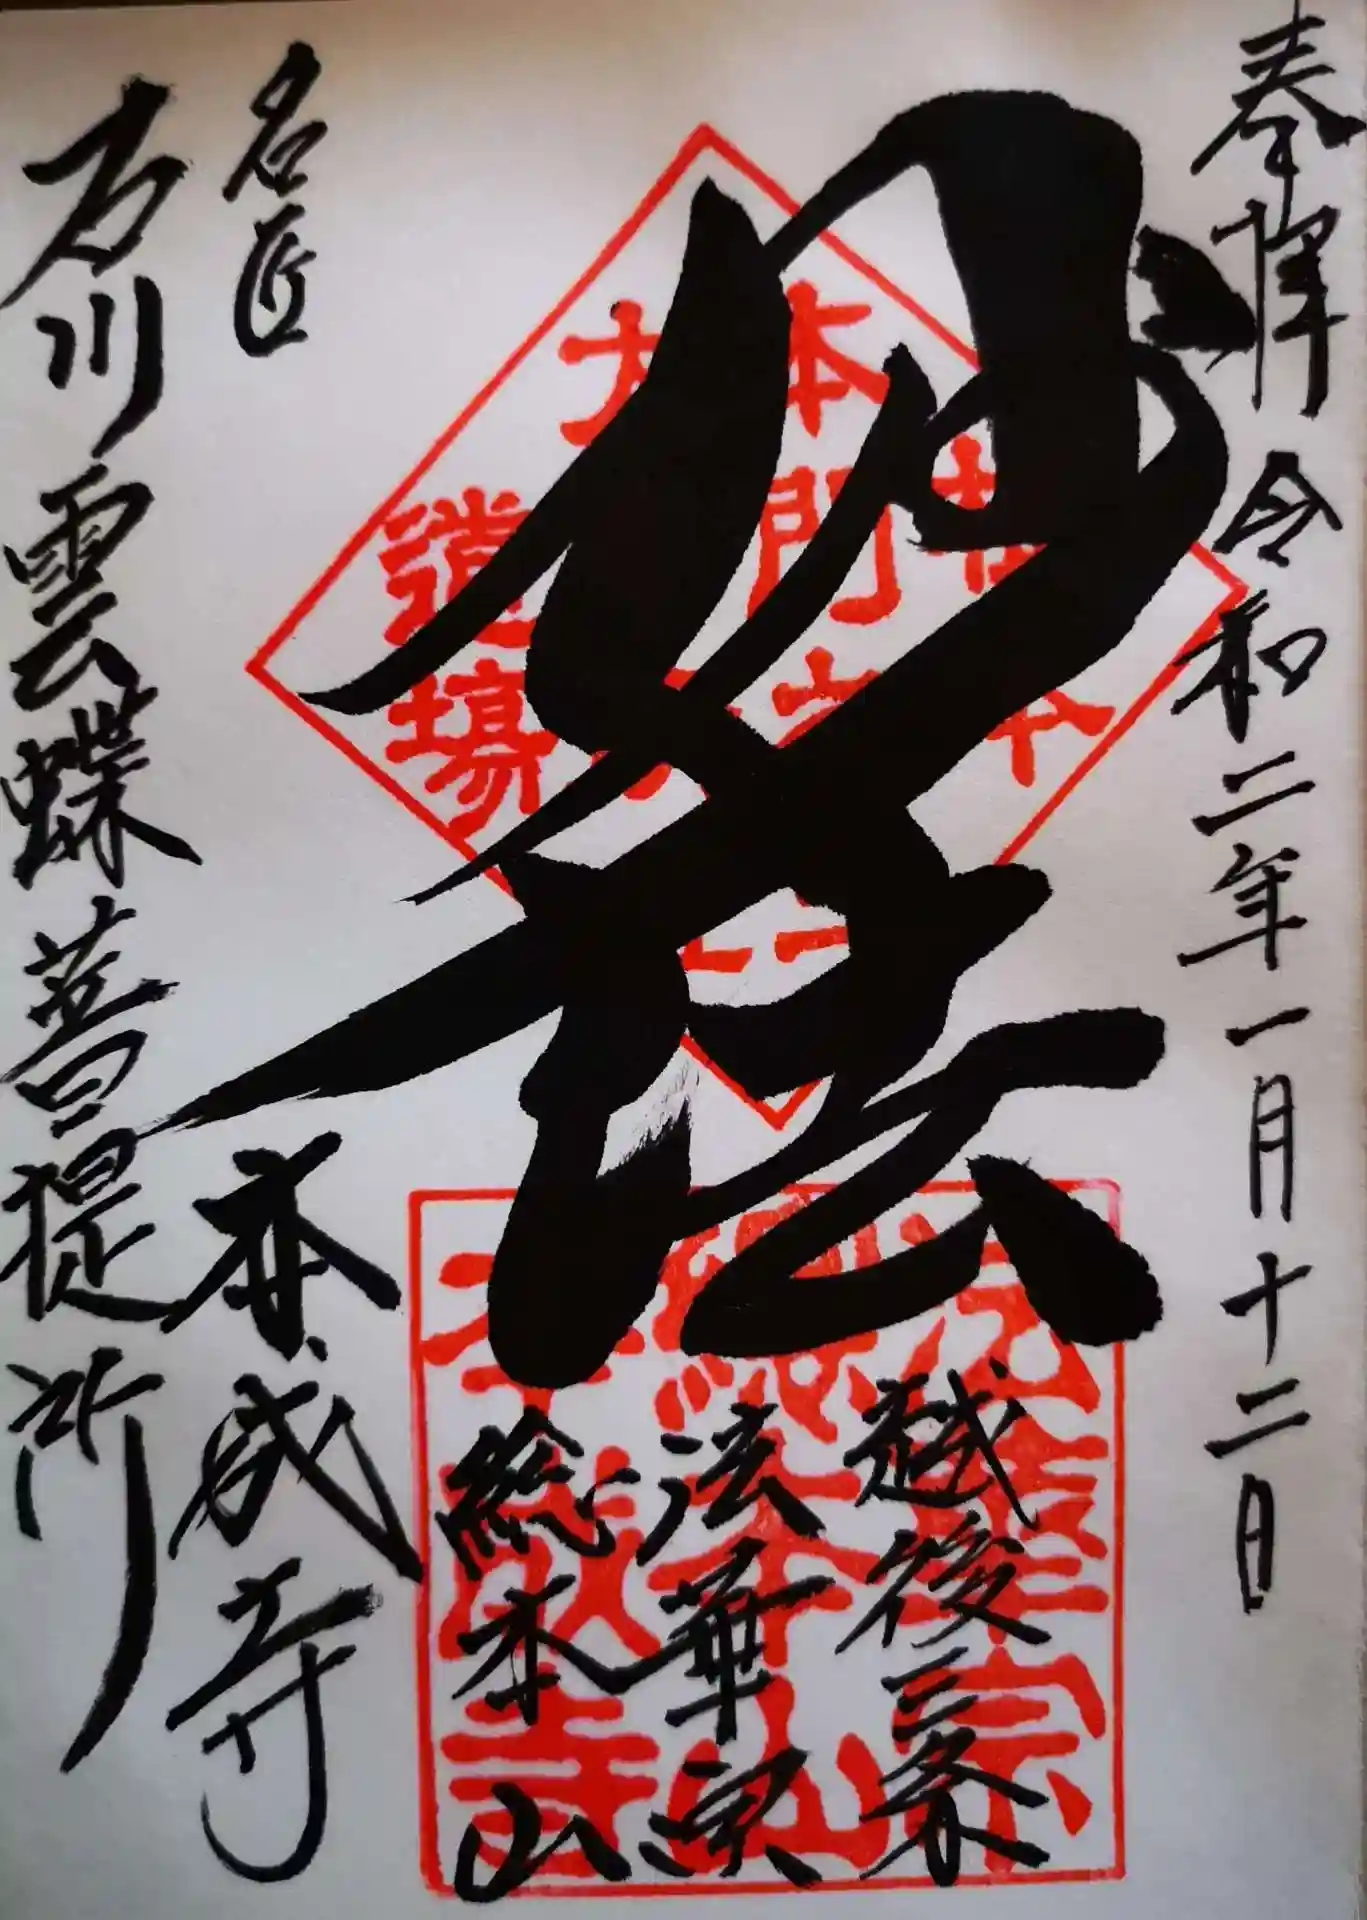 奉拝 令和二年一月十二日
本門
道場
越後三条
法華宗
総本山
法華宗
總本山
本成寺
本成寺
名匠
石川雲蝶菩提所